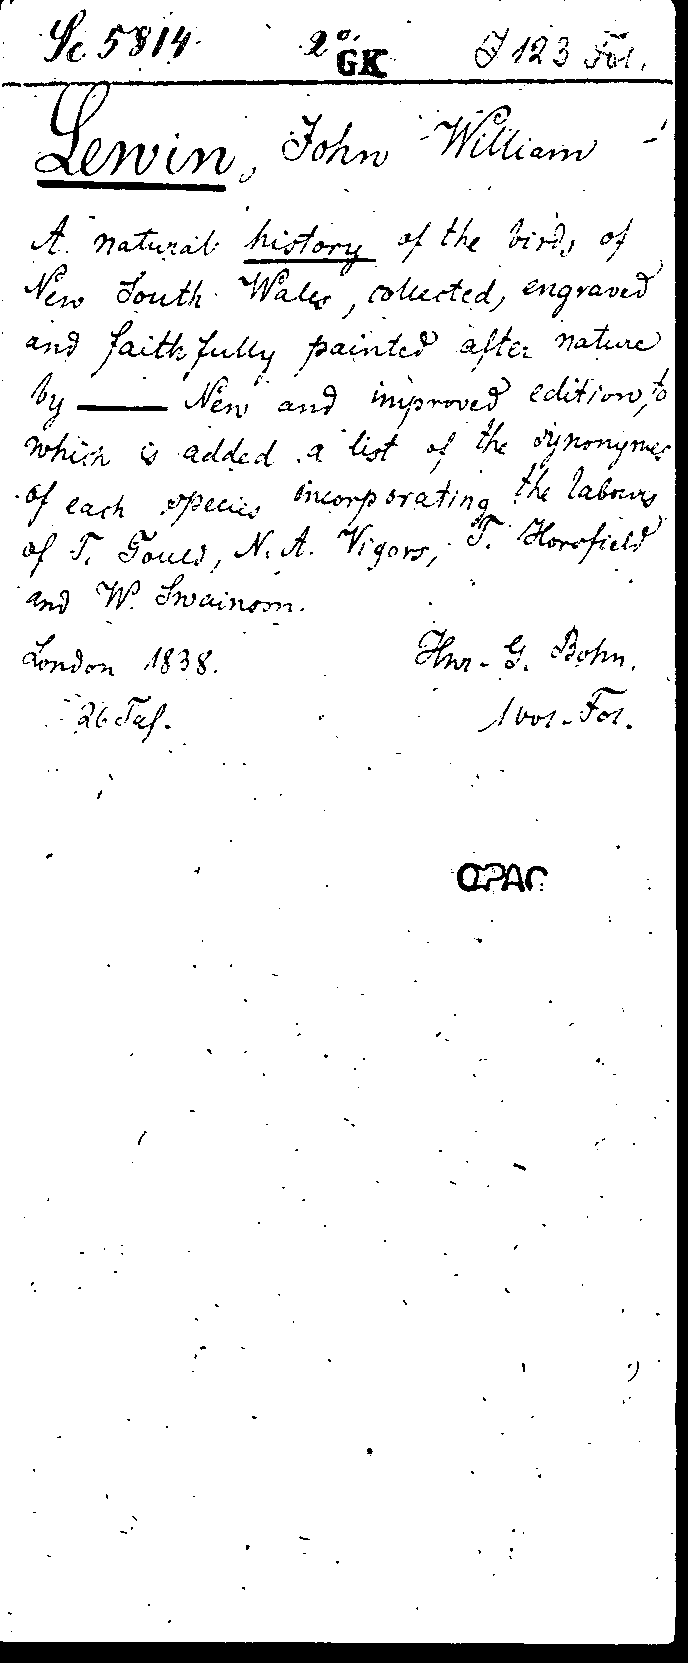 Sc 5814. 2° GK J 123 Fol.
Lewin, John William
A natural history of the birds of
New South Wales, collected, engraved
and faithfully painted after nature
by —— New and improved edition, to
which is added a list of the synonymes
of each species incorporating the labours
of T. Gould, N. A. Vigors, T. Horsfield
and W. Swainson.
London 1838. Hnr. G. Bohn.
26 Taf. 1 vol. Fol.
OPAC